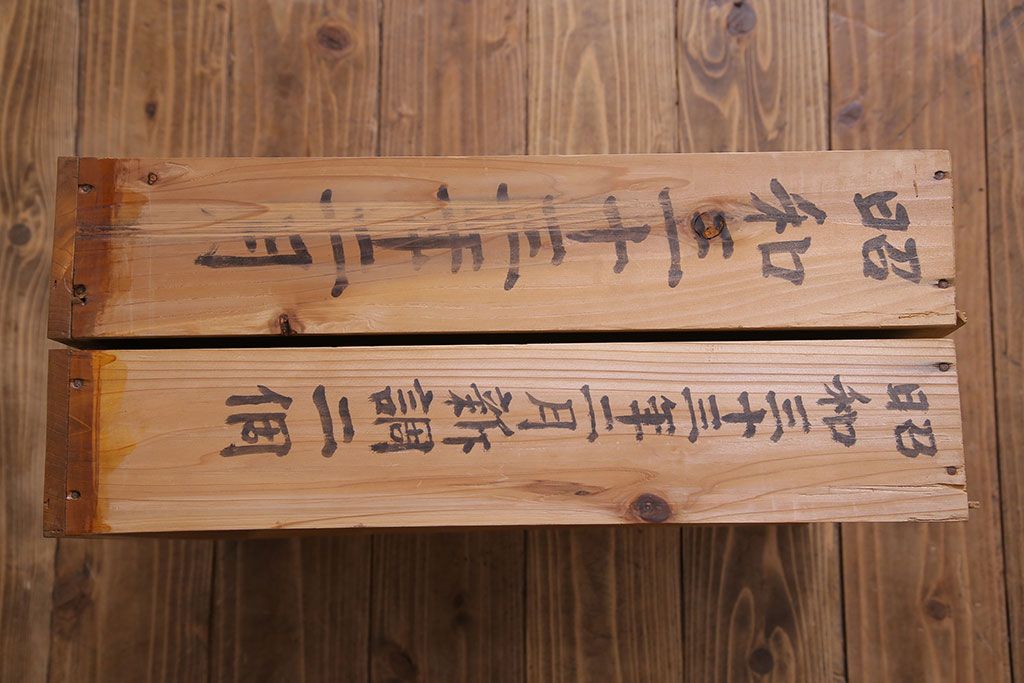 昭和三十三年二月
昭和三十三年二月新調二個